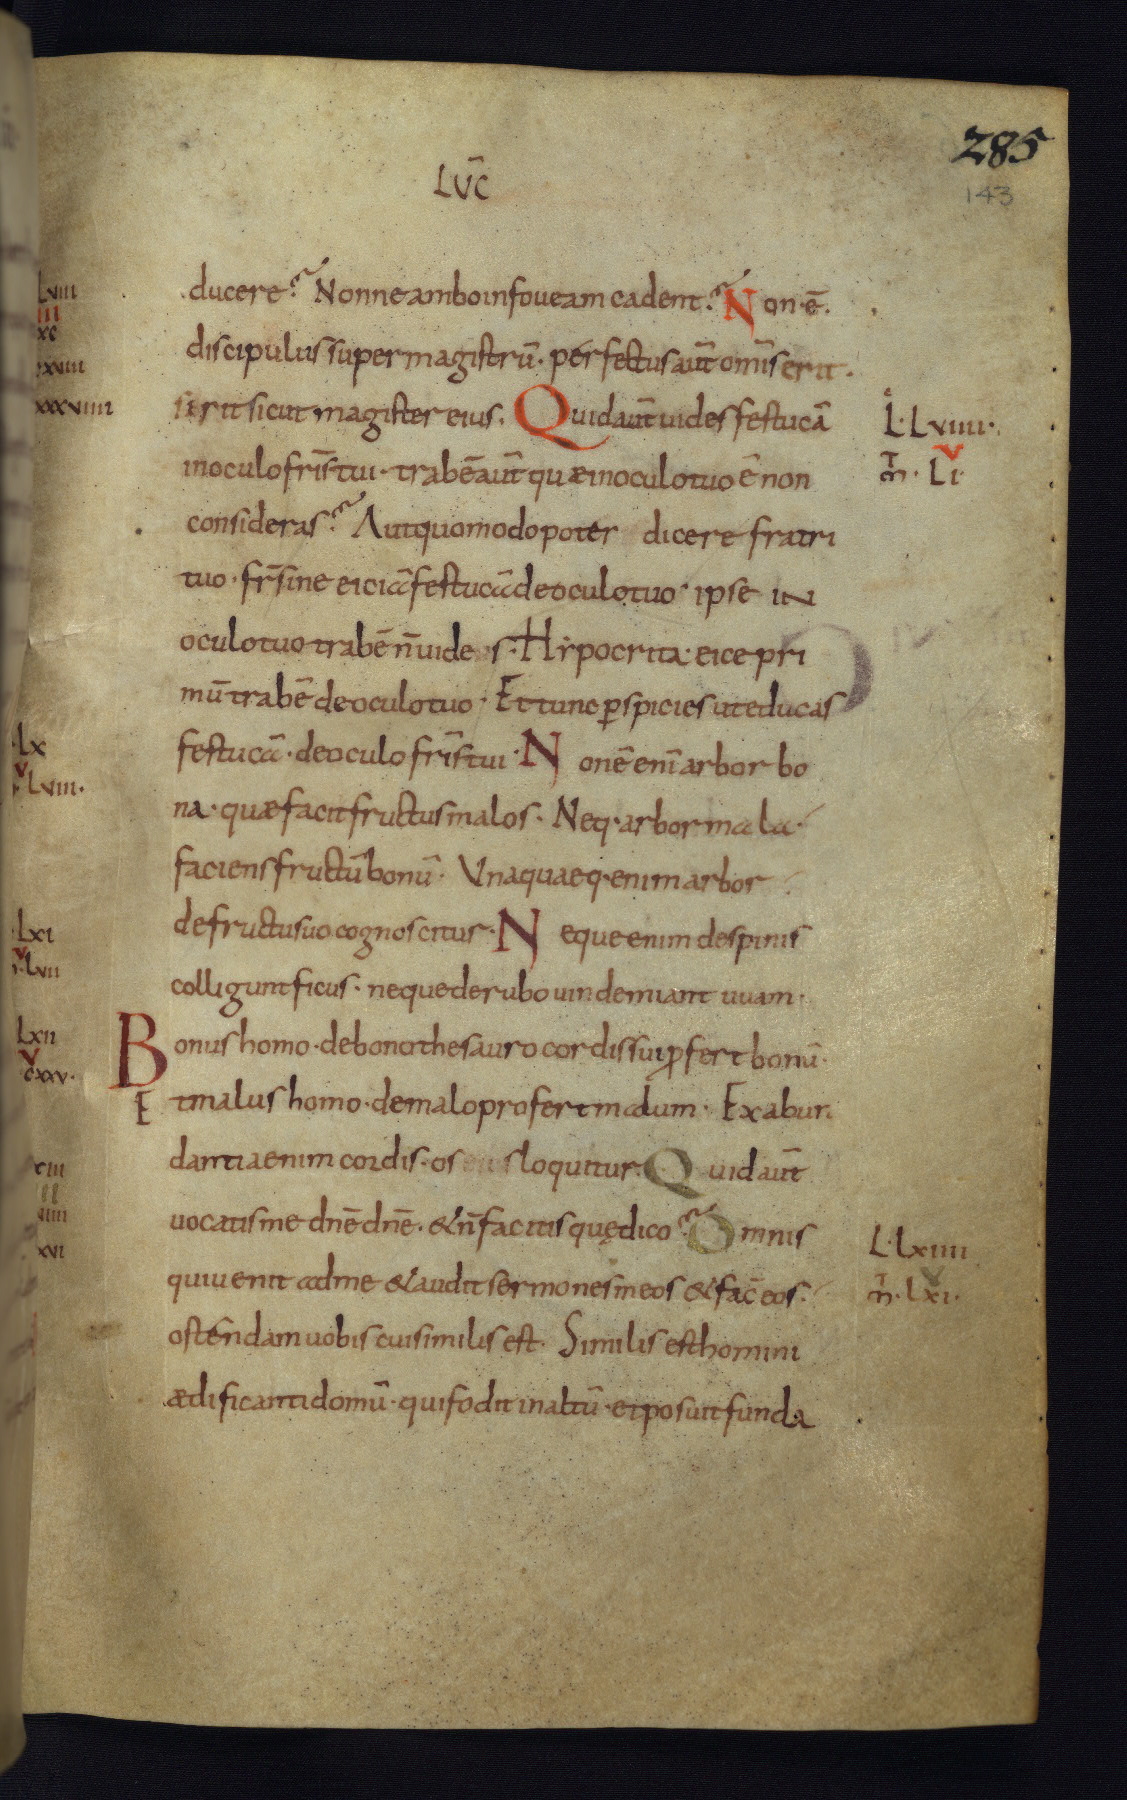 285
143
LUC̄
ducere? Nonne ambo in foueam cadent? Non·ē.
discipulus super magistrū· perfectus aūt om̄s erit.
si erit sicut magister eius. Quid aūt uides festucā
in oculo fr̄is tui· trabē aūt quæ in oculo tuo ē non
consideras? Aut quomodo poter dicere fratri
tuo· fr̄ sine eiciā festucā de oculo tuo· ipse in
oculo tuo trabē n̄ uides· Hypocrita· eice pri
mū trabē de oculo tuo· Et tunc ꝑspicies ut educas
festucā· de oculo fr̄is tui· Non ē enī arbor bo
na· quæ facit fructus malos· Neq· arbor mala·
faciens fructū bonū· Unaquaeq· enim arbor
de fructu suo cognoscitur· Neque enim de spinis
colligunt ficus· neque de rubo uindemiant uuam·
Bonus homo· de bono thesauro cordis sui ꝓfert bonū·
Et malus homo· de malo profert malum· Ex abun
dantia enim cordis· os eius loquitur· Quid aūt
uocatis me dn̄e dn̄e· & n̄ facitis quę dico? Omnis
qui uenit ad me & audit sermones meos & fac̄ eos·
ostendam uobis cui similis est· Similis est homini
ædificanti domū· qui fodit in altū· et posuit funda
Lviii
iii
xc
xxviiii
Lx
v
Lviii·
Lxi
v
Lvii
Lxii
v
cxxv·
xiii
ii
xvi
L·Lviiii·
v
m̄·Li·
L·Lxiiii
v
m̄·Lxi·